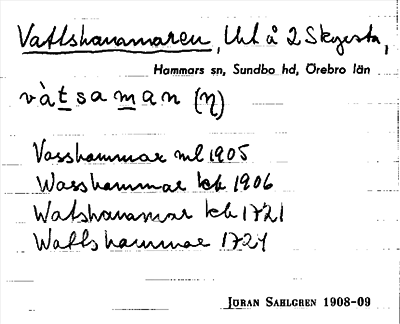 Vattshammaren, Uhl å 2 Skyrsta,
Hammars sn, Sundbo hd, Örebro län
vàtsaman (η)
Vasshammar ml 1905
Wasshammar kb 1906
Watshammar kb 1721
Wattshammar 1724
JÖRAN SAHLGREN 1908-09